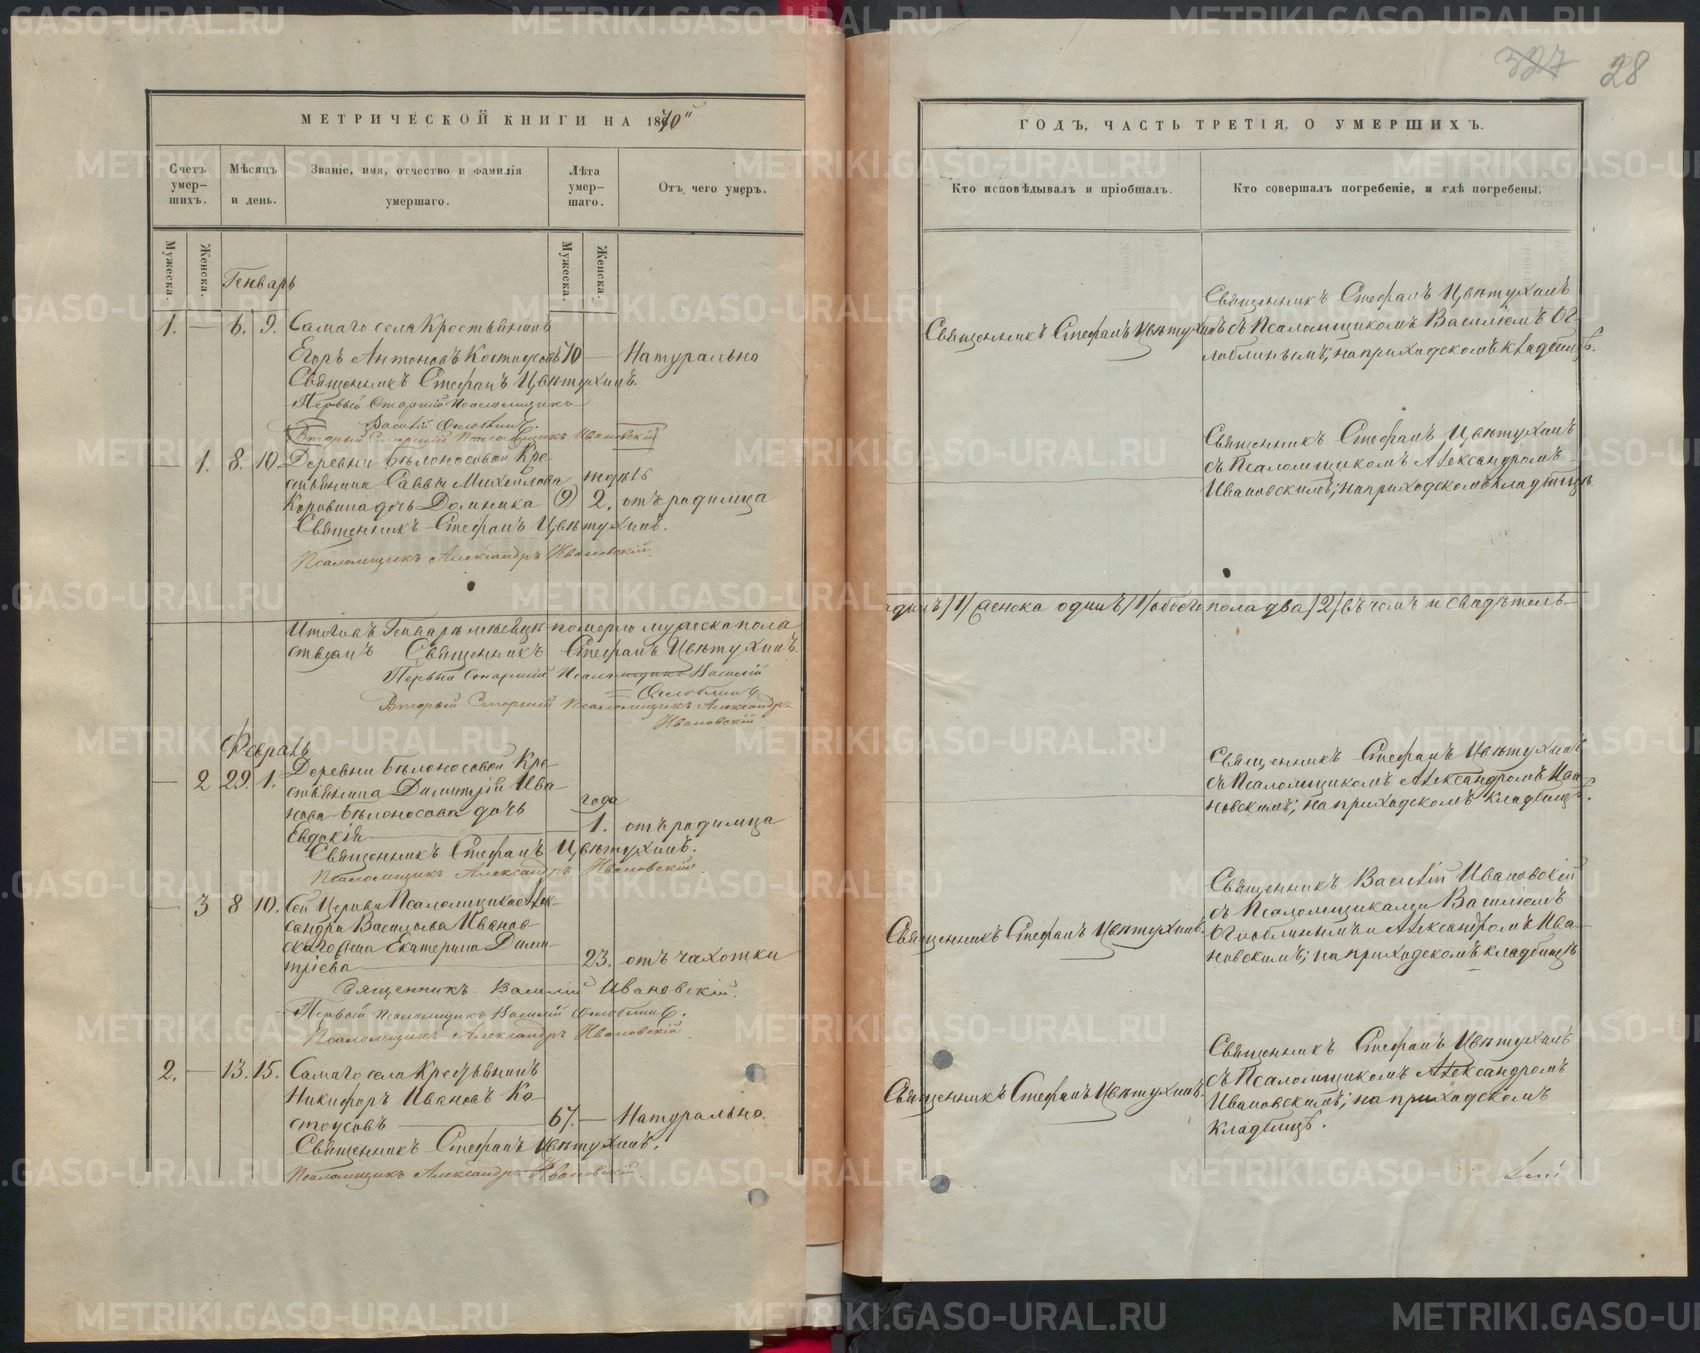 МЕТРИЧЕСКОЙ КНИГИ НА 1870й
Счетъ умер-шихъ.
Мѣсяцъ и день.
Званіе, имя, отчество и фамилія умершаго.
Лѣта умер-шаго.
Отъ чего умеръ.
Мужеска.
Женска.
Мужеска.
Женска.
Генварь
1. — 6. 9. Самаго села Крестьянинъ
Егоръ Антоновъ Костоусовъ 70 — Натурально
Священникъ Стефанъ Цвѣтухинъ.
Первый Старшій Псаломщикъ
Василій Оглоблинъ.
Вторый Старшій Псаломщикъ Ивановскій
— 1. 8. 10. Деревни Бѣлоносовой Кре-
стьянина Саввы Михайлова недѣль
Коровина дочь Домника (9) 2. отъ родимца
Священникъ Стефанъ Цвѣтухинъ.
Псаломщикъ Александръ Ивановскій.
Итого въ Генварѣ мѣсяцѣ померло мужеска пола
ствуемъ Священникъ Стефанъ Цвѣтухинъ.
Первый Старшій Псаломщикъ Василій
Оглоблинъ
Вторый Старшій Псаломщикъ Александръ
Ивановскій
Февраль
— 2 29. 1. Деревни Бѣлоносовой Кре-
стьянина Димитрія Ива-
нова Бѣлоносова дочь года
Евдокія — 1. отъ родимца
Священникъ Стефанъ Цвѣтухинъ.
Псаломщикъ Александръ Ивановскій.
— 3 8 10. Сей Церкви Псаломщика Алек-
сандра Васильева Иванов-
скаго жена Екатерина Дими-
тріева 23. отъ чахотки
Священникъ Василій Ивановскій.
Первый Псаломщикъ Василій Оглоблинъ.
Псаломщикъ Александръ Ивановскій.
2. — 13. 15. Самаго села Крестьянинъ
Никифоръ Ивановъ Ко-
стоусовъ 67. — Натурально.
Священникъ Стефанъ Цвѣтухинъ.
Псаломщикъ Александръ Ивановскій
327 28
ГОДЪ, ЧАСТЬ ТРЕТІЯ, О УМЕРШИХЪ.
Кто исповѣдывалъ и пріобщалъ.
Кто совершалъ погребеніе, и гдѣ погребены.
Священникъ Стефанъ Цвѣтухинъ
Священникъ Стефанъ Цвѣтухинъ
съ Псаломщикомъ Василіемъ Ог-
лоблинымъ; на приходскомъ кладбищѣ.
Священникъ Стефанъ Цвѣтухинъ
съ Псаломщикомъ Александромъ
Ивановскимъ; на приходскомъ кладбищѣ
одинъ /1/ женска одинъ /1/ обоего пола два /2/ въ чемъ и свидѣтель-
Священникъ Стефанъ Цвѣтухинъ
съ Псаломщикомъ Александромъ Ива-
новскимъ; на приходскомъ кладбищѣ.
Священникъ Стефанъ Цвѣтухинъ.
Священникъ Василій Ивановскій
съ Псаломщиками Василіемъ
Оглоблинымъ и Александромъ Ива-
новскимъ; на приходскомъ кладбищѣ
Священникъ Стефанъ Цвѣтухинъ.
Священникъ Стефанъ Цвѣтухинъ
съ Псаломщикомъ Александромъ
Ивановскимъ; на приходскомъ
кладбищѣ.
METRIKI.GASO-URAL.RU